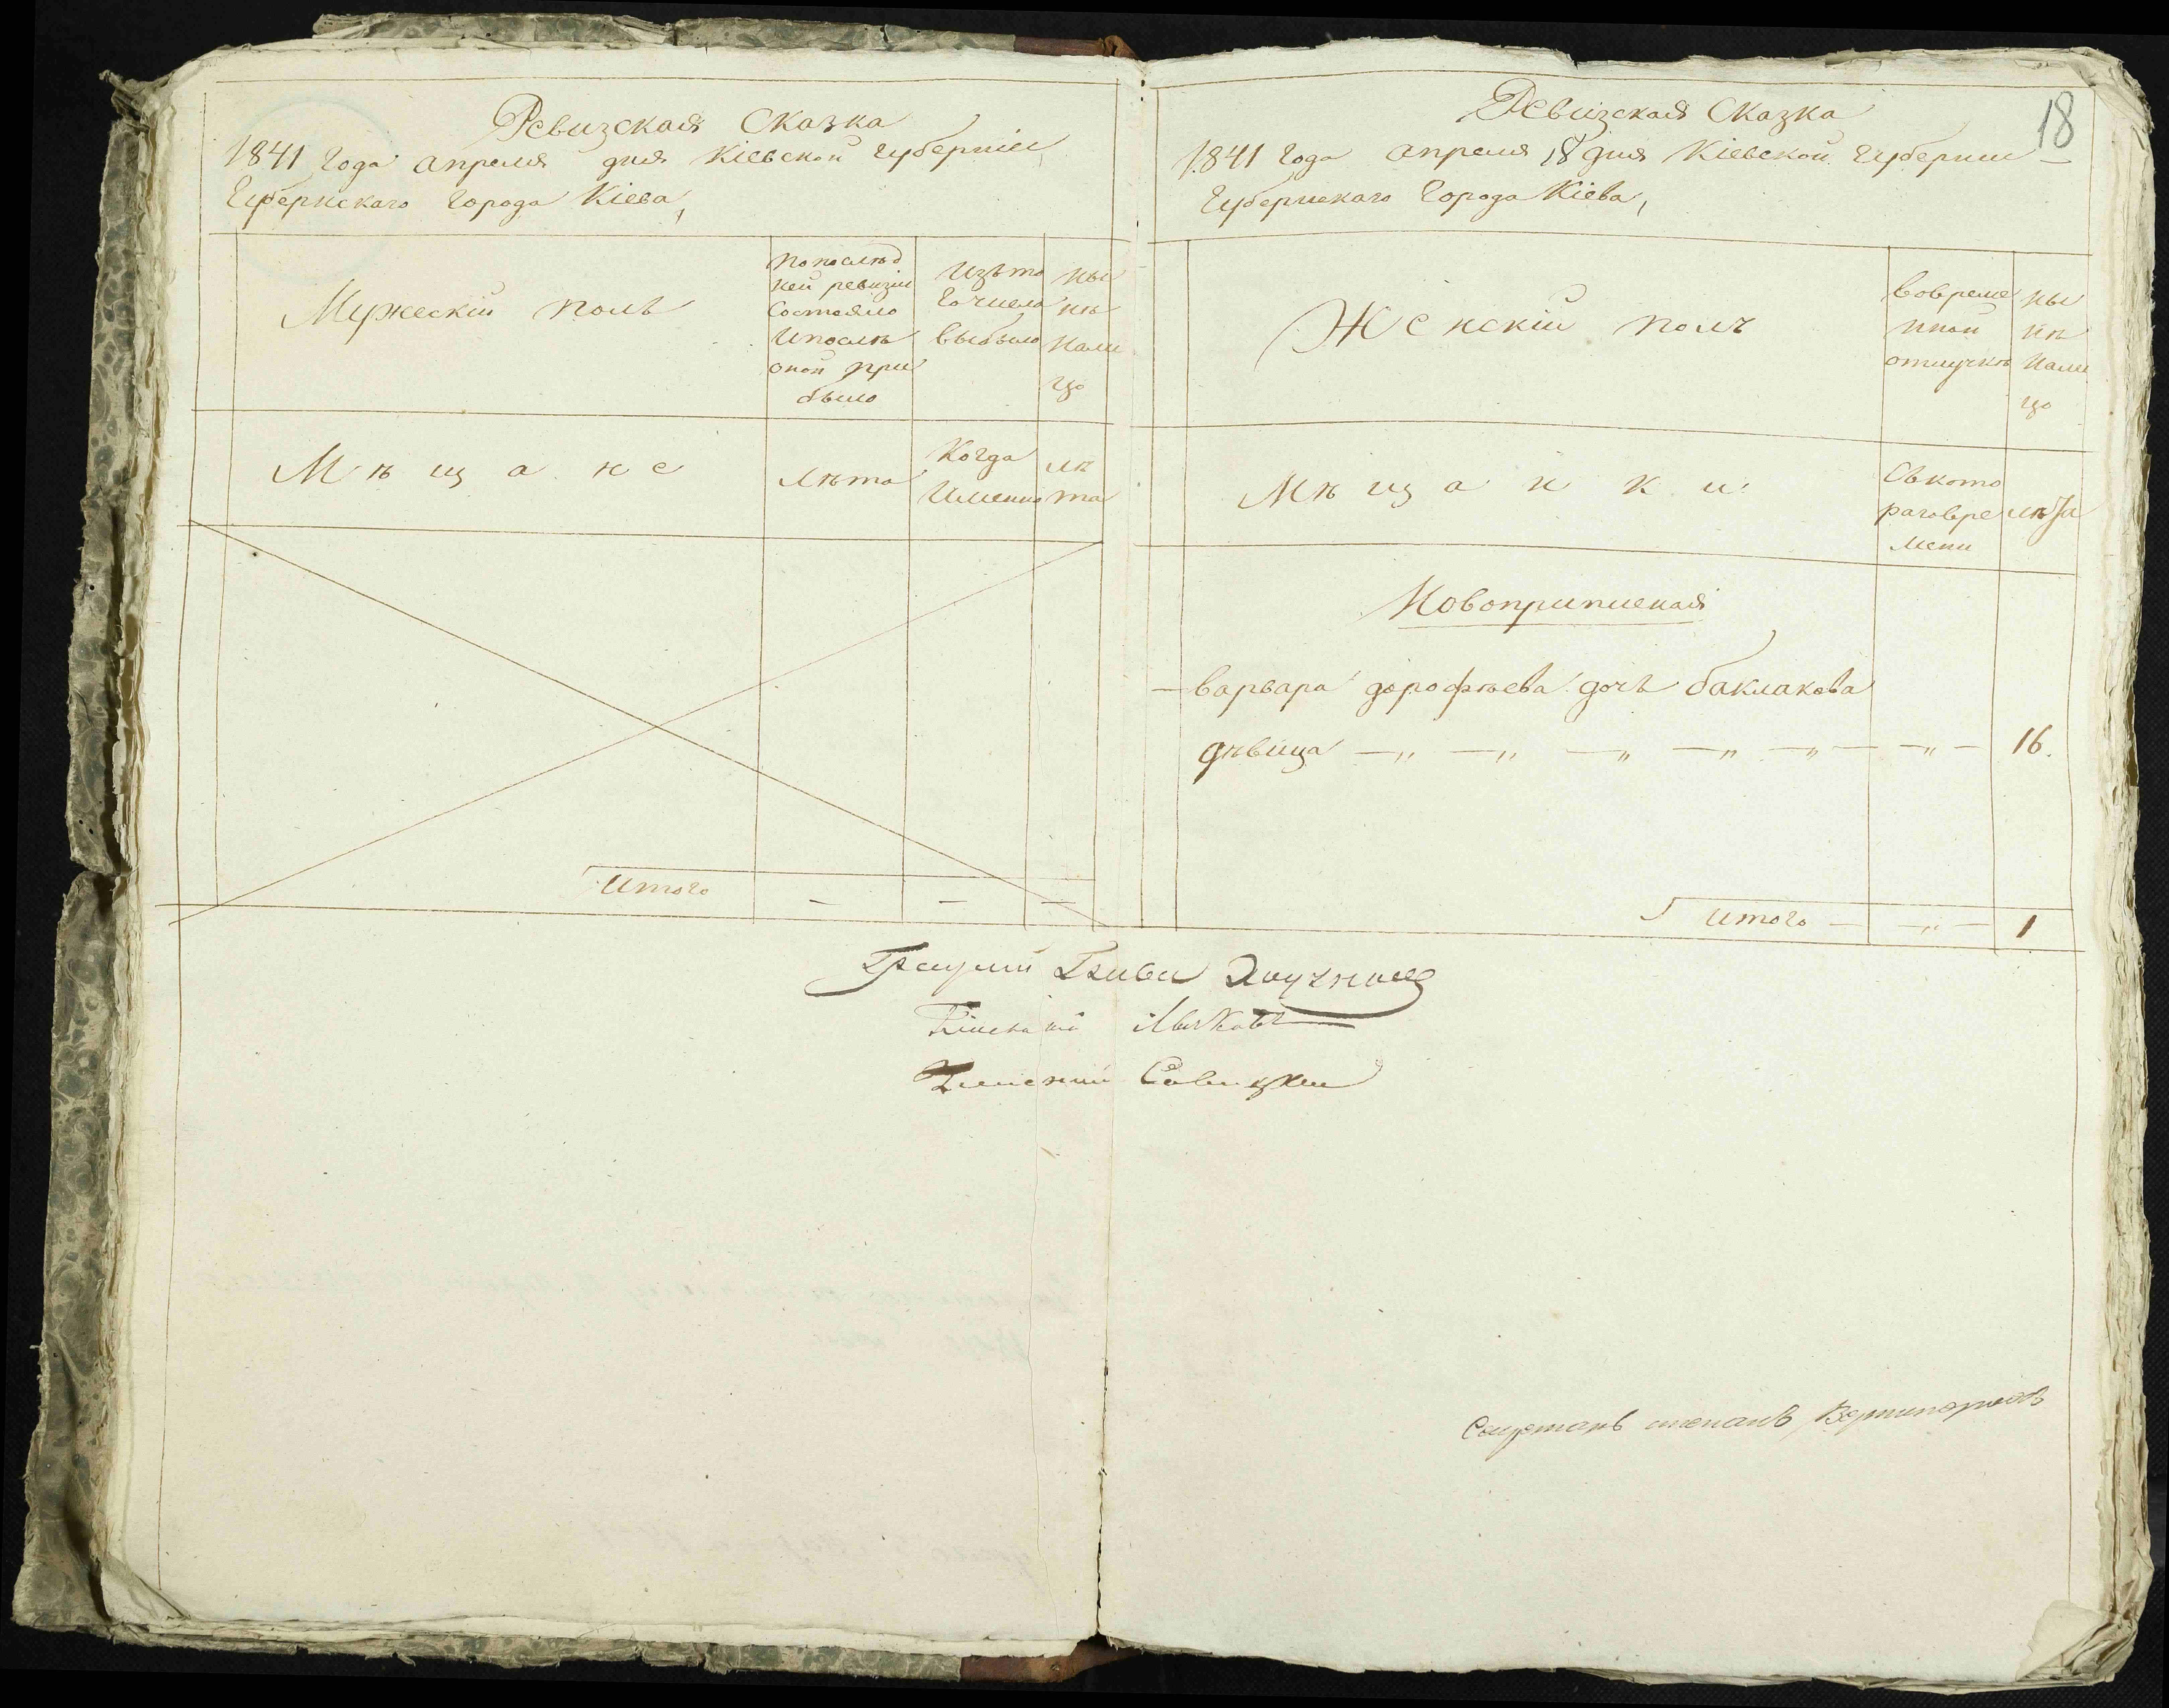 Ревизская Сказка
1841 года апреля дня Кіевской губерніи
Губернскаго города Кіева,
Мужескій полъ
Попослѣд
ней ревизіи
Состояло
Ипослѣ
оной при
было
Изъто
гочисла
выбыло
ны
нѣ
нали
цо
Мѣщане
Лѣта
Когда
Именно
лѣ
та
Итого — — —
18
Ревизская Сказка
1841 года апреля 18 дня Кіевской губернии
Губернскаго города Кіева,
Женскій полъ
вовреме
нной
отлучкѣ
ны
нѣ
нали
цо
Мѣщанки
Съкото
раговре
мени
лѣта
Новоприписная
— варвара дорофѣева дочь баклакова
дѣвица —„ —„ —„ —„ —„— —„— 16.
Итого — —„— 1
Савицкий
степанъ